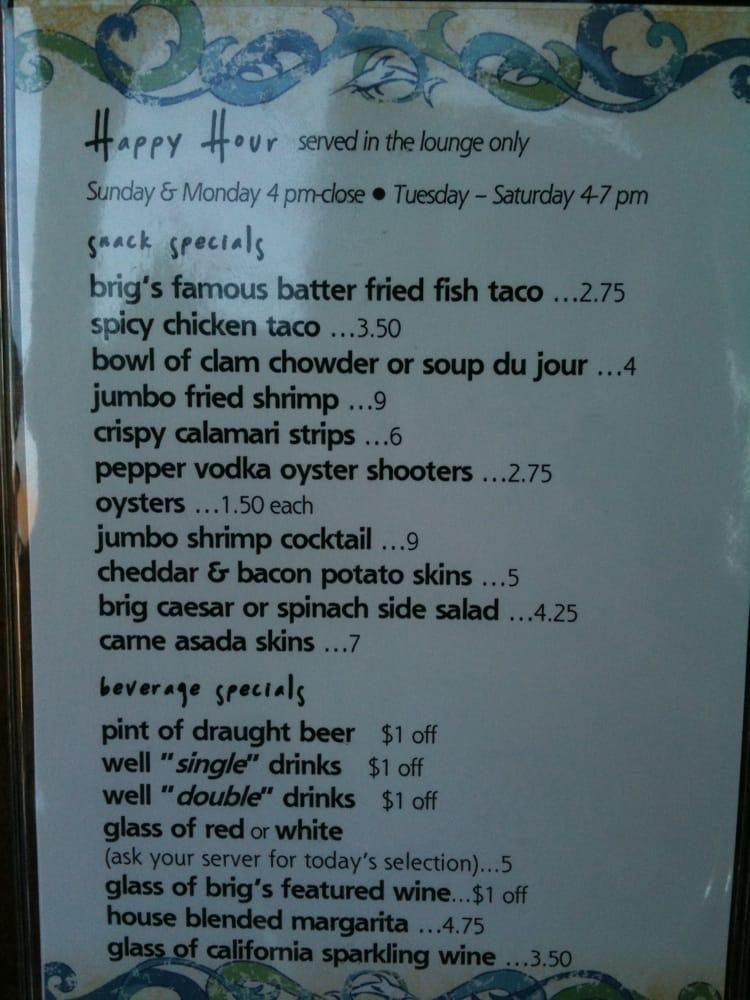 Happy Hour served in the lounge only
Sunday & Monday 4 pm-close ● Tuesday – Saturday 4-7 pm
snack specials
brig's famous batter fried fish taco ...2.75
spicy chicken taco ...3.50
bowl of clam chowder or soup du jour ...4
jumbo fried shrimp ...9
crispy calamari strips ...6
pepper vodka oyster shooters ...2.75
oysters ...1.50 each
jumbo shrimp cocktail ...9
cheddar & bacon potato skins ...5
brig caesar or spinach side salad ...4.25
carne asada skins ...7
beverage specials
pint of draught beer $1 off
well "single" drinks $1 off
well "double" drinks $1 off
glass of red or white
(ask your server for today's selection)...5
glass of brig's featured wine...$1 off
house blended margarita ...4.75
glass of california sparkling wine ...3.50